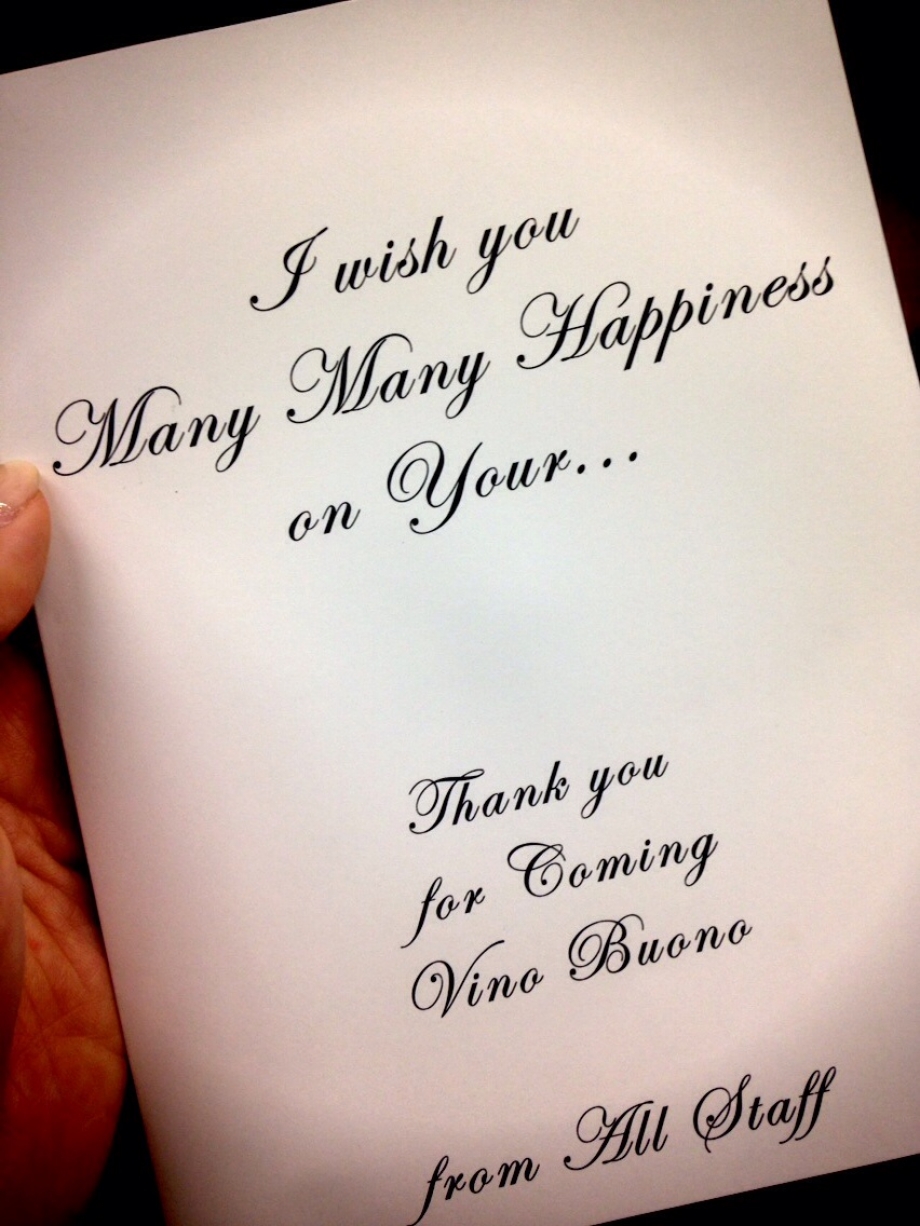 I wish you
Many Many Happiness
on Your...
Thank you
for Coming
Vino Buono
from All Staff